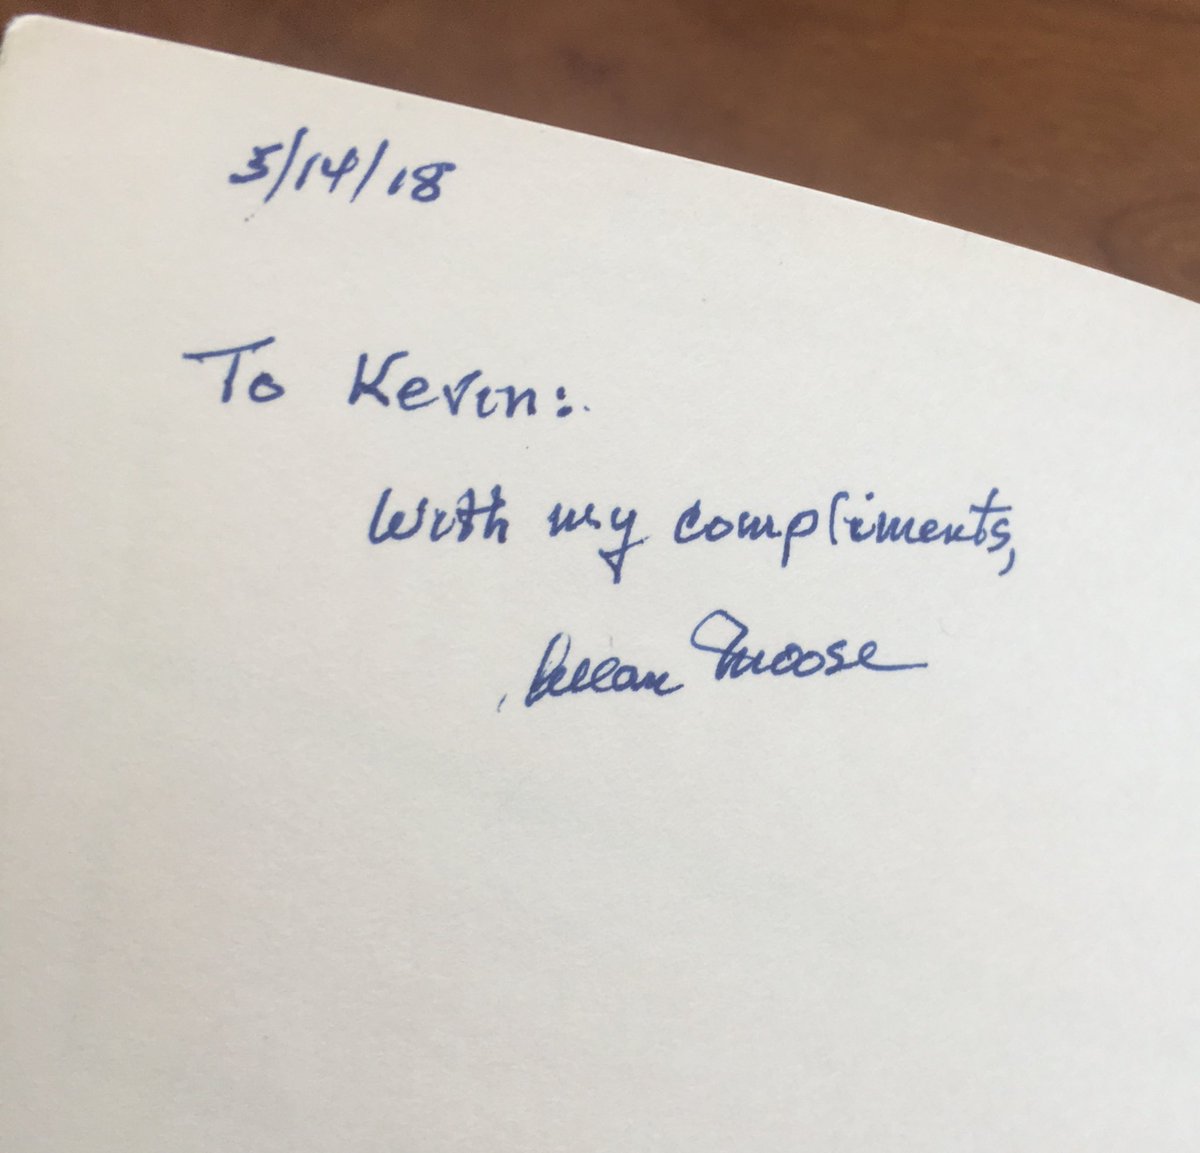 5/14/18
To Kevin:
With my compliments,
Moose